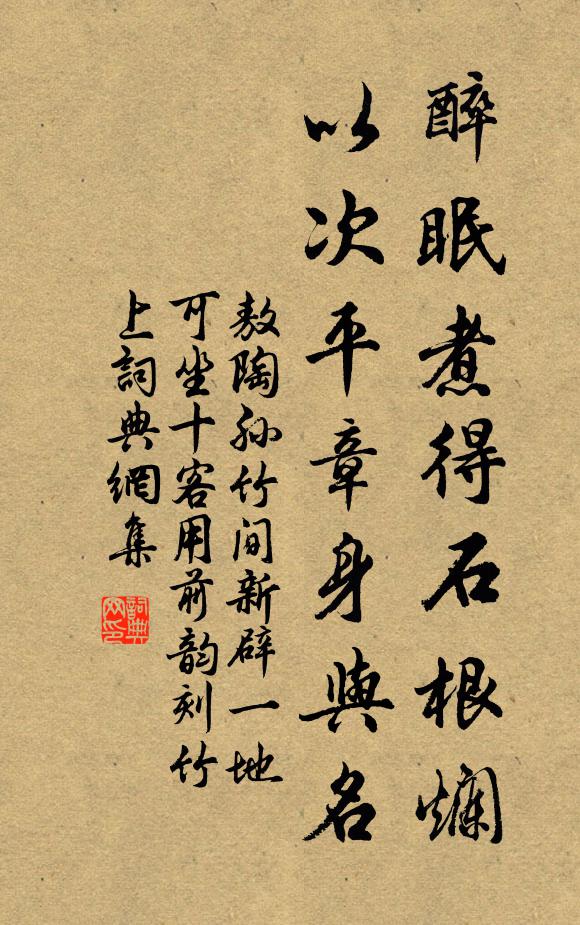 醉眠煮得石根爛
以次平章身與名
敖陶孙竹间新辟一地
可坐十客用前韵刻竹
上詞典網集
詞典
网印